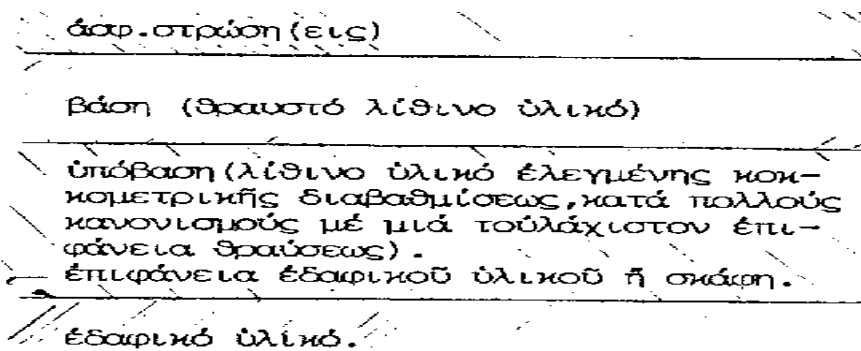 ἀσφ.στρώση(εις)
βάση (θραυστό λίθινο ὑλικό)
ὑπόβαση(λίθινο ὑλικό ἐλεγμένης κοκ-
κομετρικῆς διαβαθμίσεως,κατά πολλούς
κανονισμούς μέ μιά τοὐλάχιστον ἐπι-
φάνεια θραύσεως).
ἐπιφάνεια ἐδαφικοῦ ὑλικοῦ ἤ σκάφη.
ἐδαφικό ὑλικό.